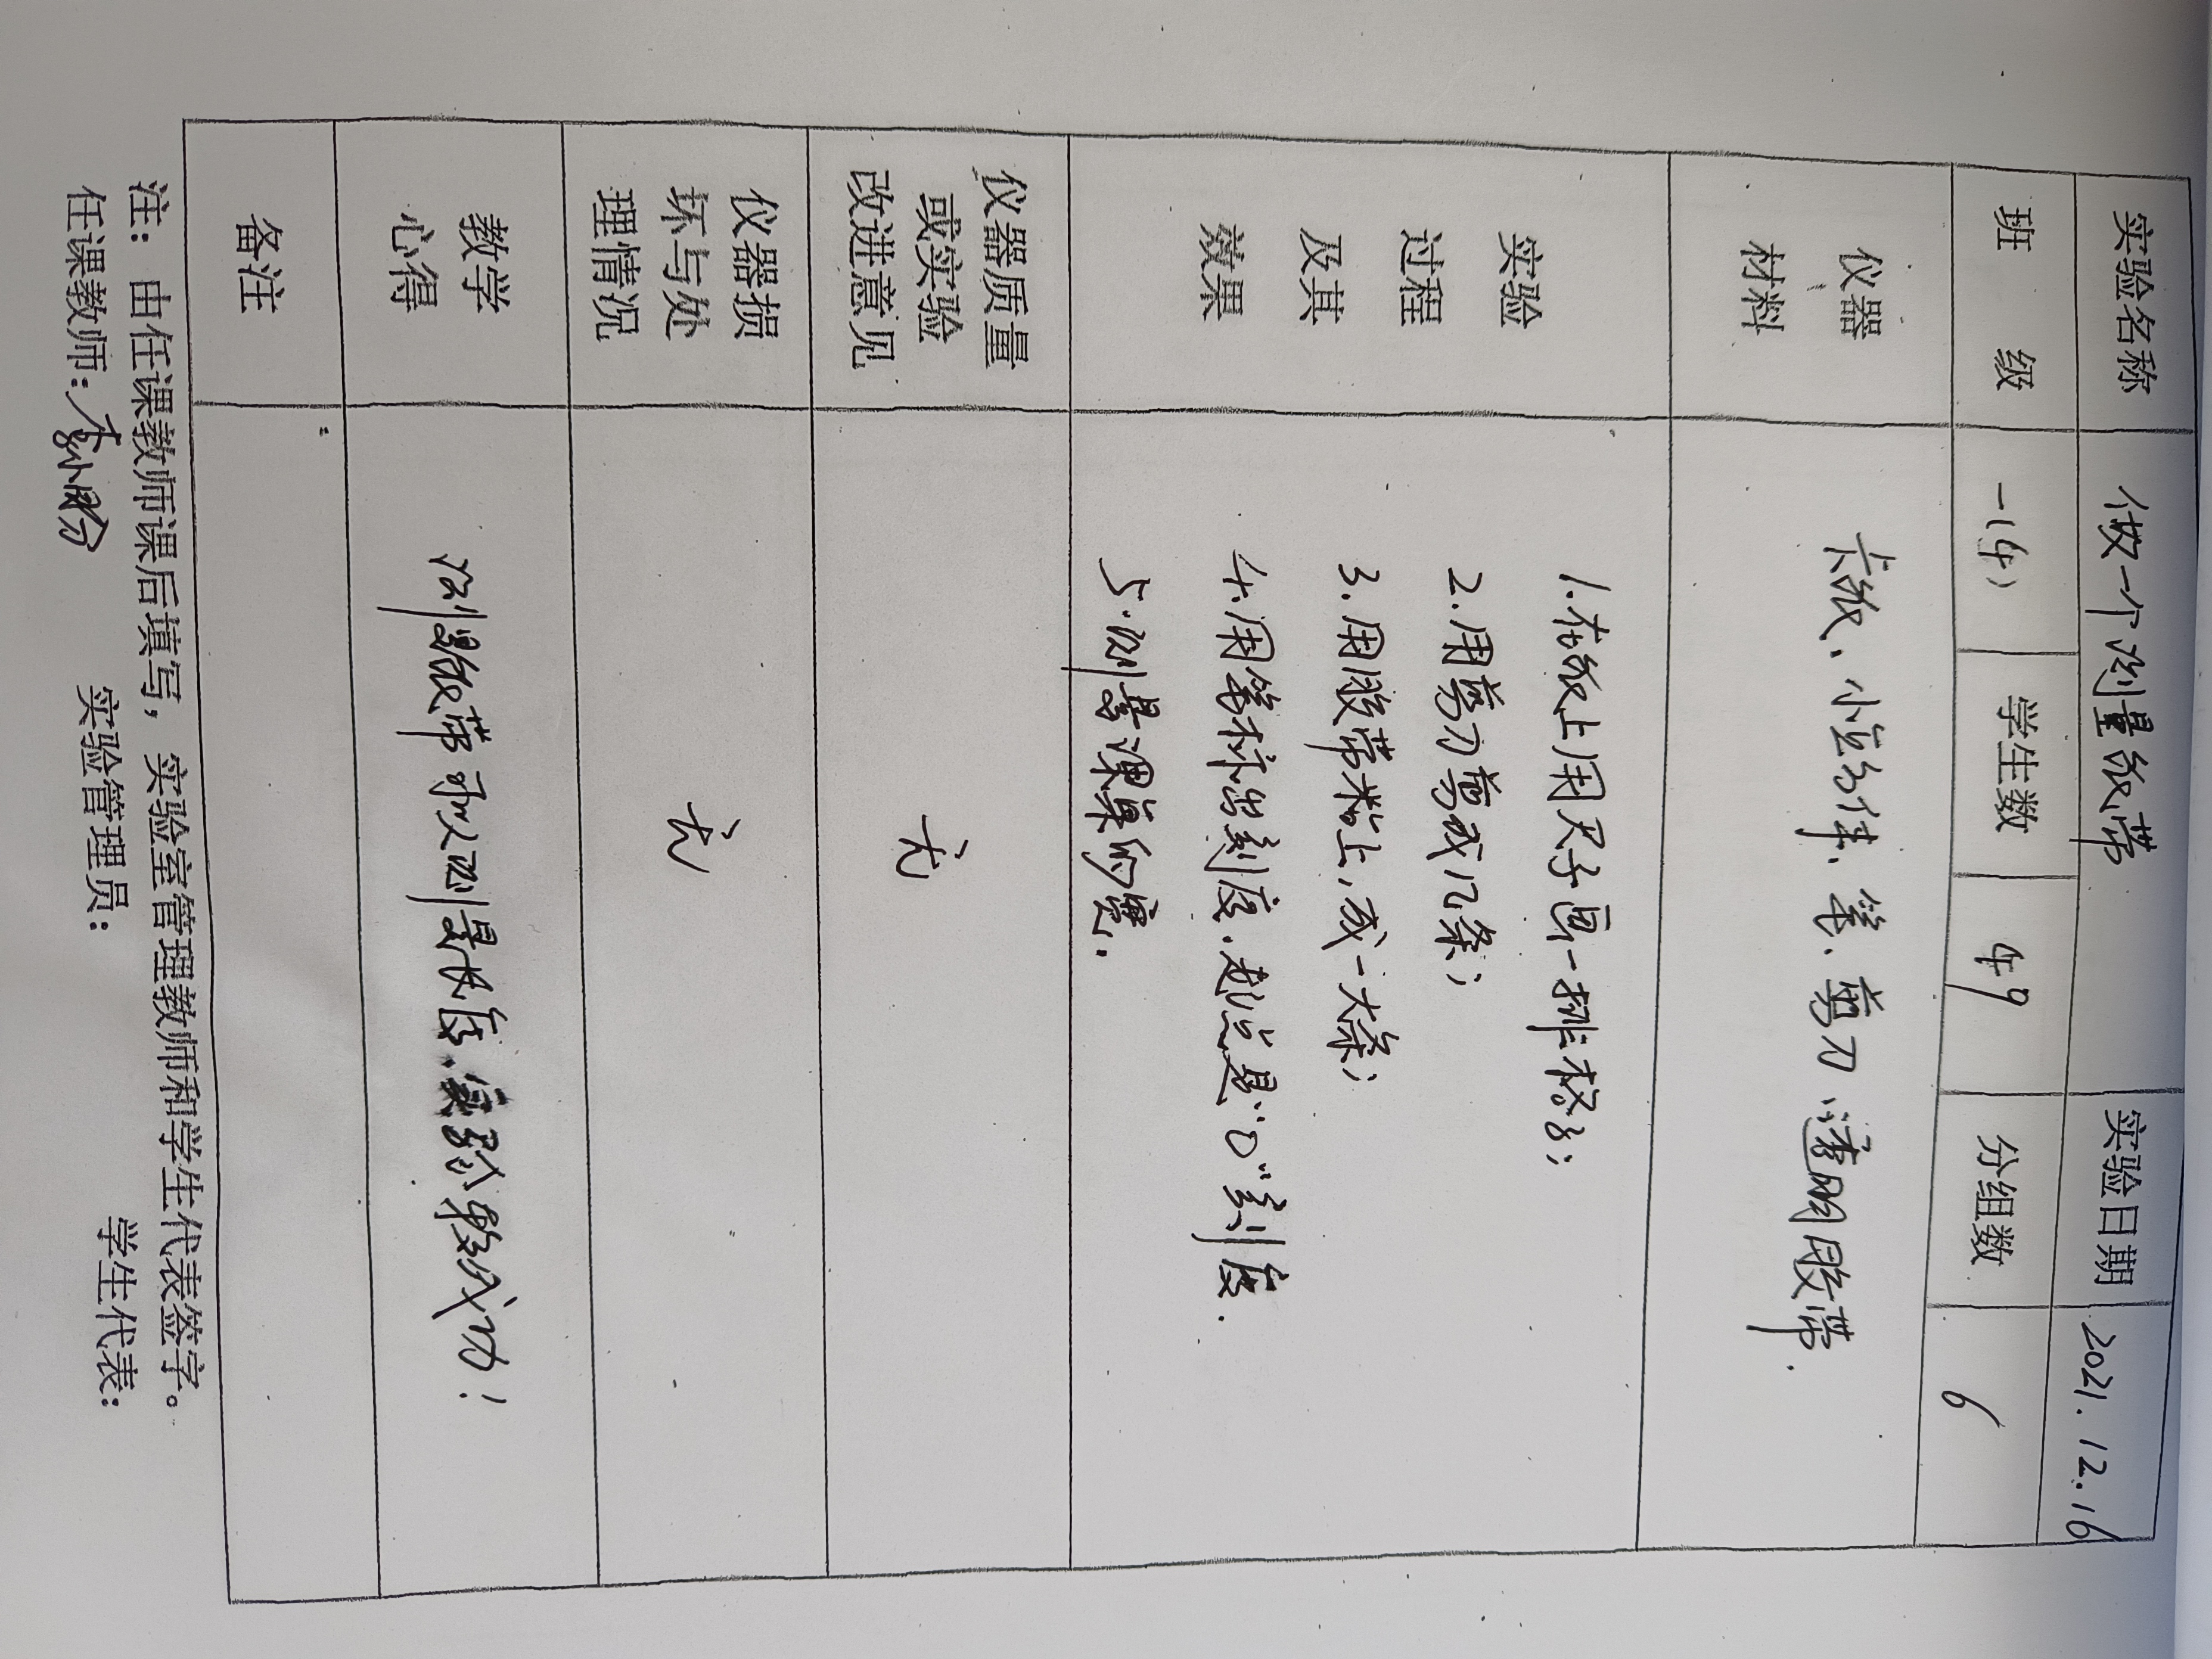 实验名称 做一个测量纸带 实验日期 2021.12.16
班 级 一(4) 学生数 49 分组数 6
仪器
材料
卡纸、小立方体、笔、剪刀、透明胶带.
实验
过程
及其
效果
1.在纸上用尺子画一排格子;
2.用剪刀剪成几条;
3.用胶带粘上,成一大条;
4.用笔标出刻度,起点是"0"刻度.
5.测量课桌的宽.
仪器质量
或实验
改进意见
无
仪器损
坏与处
理情况
无
教学
心得
测量纸带可以测量长度,实验较成功!
备注
注:由任课教师课后填写,实验室管理教师和学生代表签字。
任课教师: 实验管理员: 学生代表: